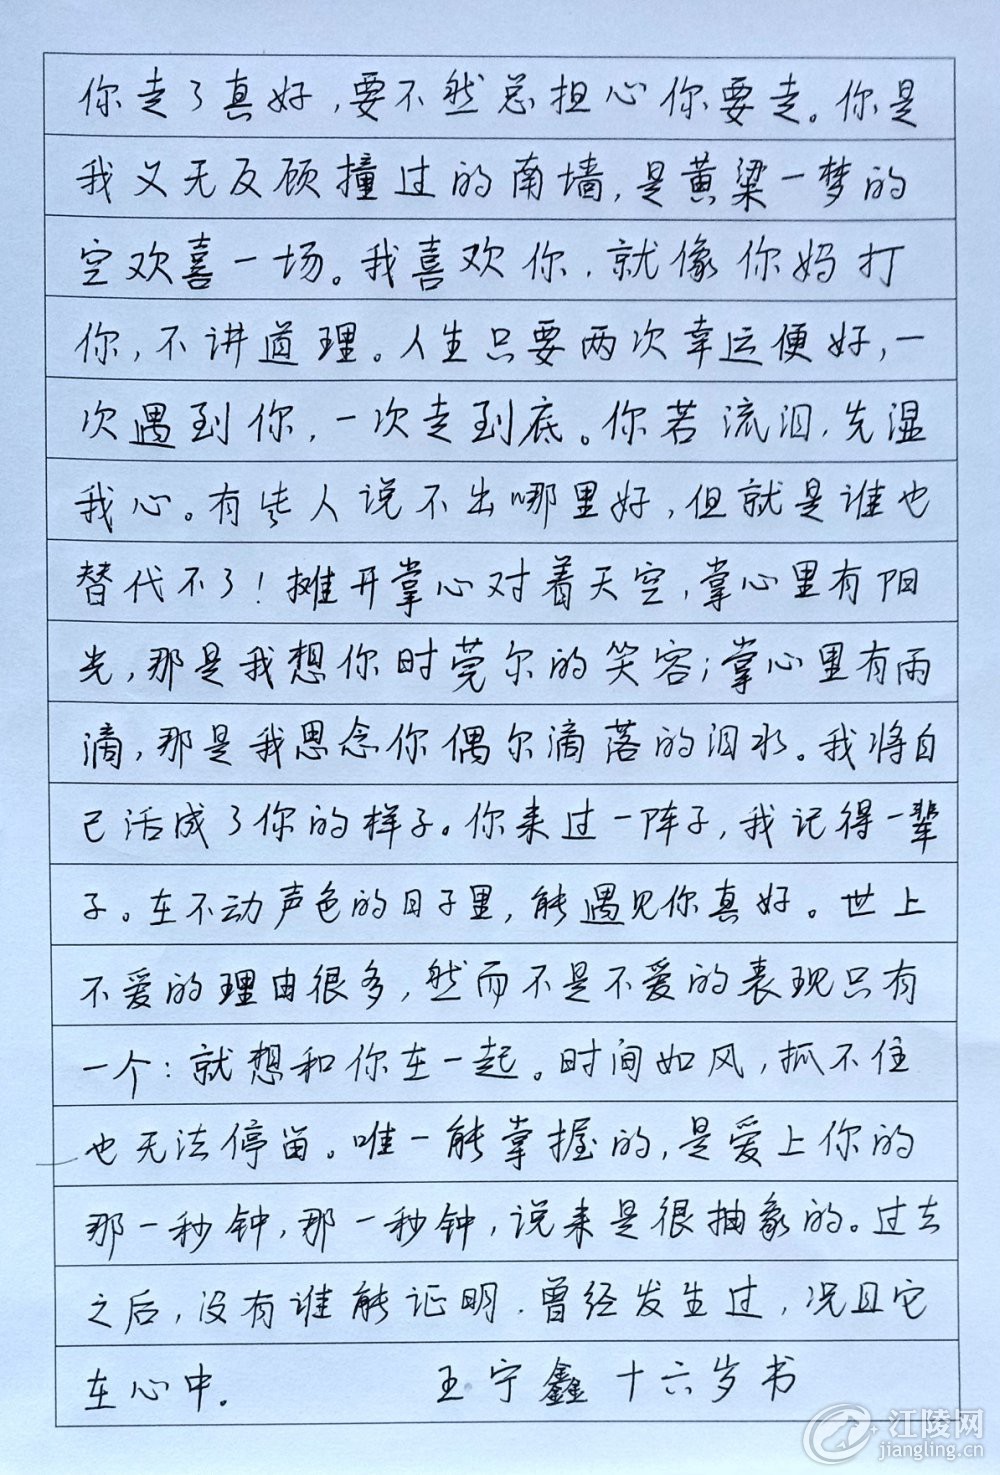 你走了真好，要不然总担心你要走。你是
我义无反顾撞过的南墙，是黄粱一梦的
空欢喜一场。我喜欢你，就像你妈打
你，不讲道理。人生只要两次幸运便好，一
次遇到你，一次走到底。你若流泪，先湿
我心。有些人说不出哪里好，但就是谁也
替代不了！摊开掌心对着天空，掌心里有阳
光，那是我想你时莞尔的笑容；掌心里有雨
滴，那是我思念你偶尔滴落的泪水。我将自
己活成了你的样子。你来过一阵子，我记得一辈
子。在不动声色的日子里，能遇见你真好。世上
不爱的理由很多，然而不是不爱的表现只有
一个：就想和你在一起。时间如风，抓不住
也无法停留。唯一能掌握的，是爱上你的
那一秒钟，那一秒钟，说来是很抽象的。过去
之后，没有谁能证明，曾经发生过，况且它
在心中。 王宁鑫十六岁书
江陵网
jiangling.cn